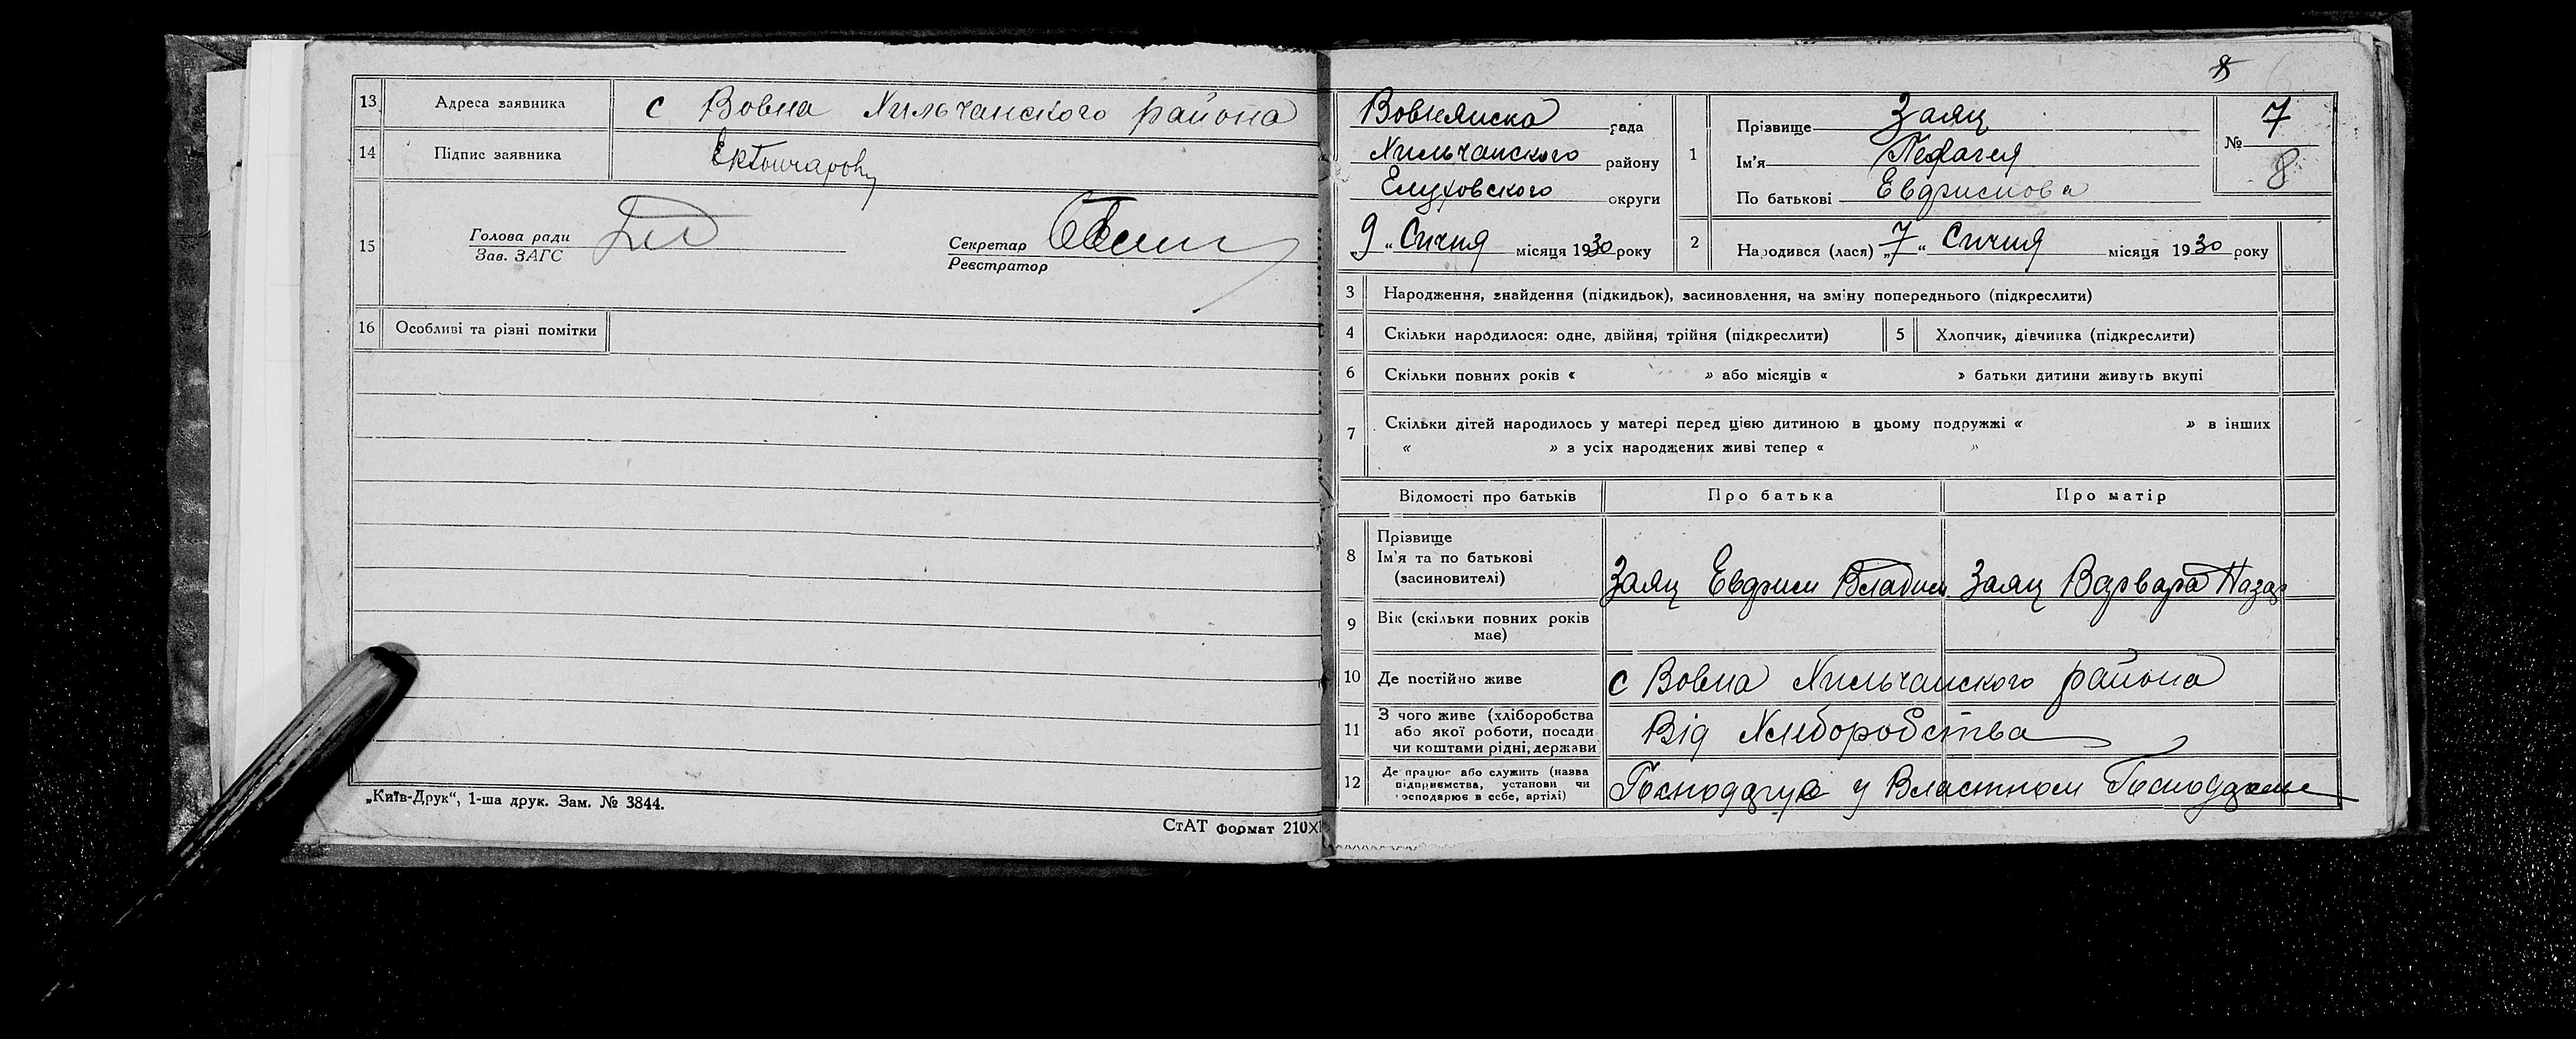 13 Адреса заявника с Вовна Хильчанского района
14 Підпис заявника
15 Голова ради
Зав. ЗАГС
Секретар
Реєстратор
16 Особливі та різні помітки
„Київ-Друк“, 1-ша друк. Зам. № 3844.
СтАТ формат 210X
8
Вовнянска рада
Хильчанского району
округи
9 „ Сичня місяця 1930 року
1 Прізвище Заяц
Ім'я Пелагея
По батькові
№ 7
8
2 Народився (лася) „7“ Сичня місяця 1930 року
3 Народження, знайдення (підкидьок), засиновлення, на зміну попереднього (підкреслити)
4 Скільки народилося: одне, двійня, трійня (підкреслити) 5 Хлопчик, дівчинка (підкреслити)
6 Скільки повних років « » або місяців « » батьки дитини живуть вкупі
7 Скільки дітей народилось у матері перед цією дитиною в цьому подружжі « » в інших
« » з усіх народжених живі тепер « »
Відомості про батьків Про батька Про матір
8 Прізвище
Ім'я та по батькові
(засновителі)
Заяц Владим. Заяц Варвара Назар
9 Вік (скільки повних років
має)
10 Де постійно живе с Вовна Хильчанского района
11 З чого живе (хліборобства
або якої роботи, посади
чи коштами рідні, держави
Від Хлиборобства
12 Де працює або служить (назва
підприємства, установи чи
господарює в себе, артілі)
у Властном